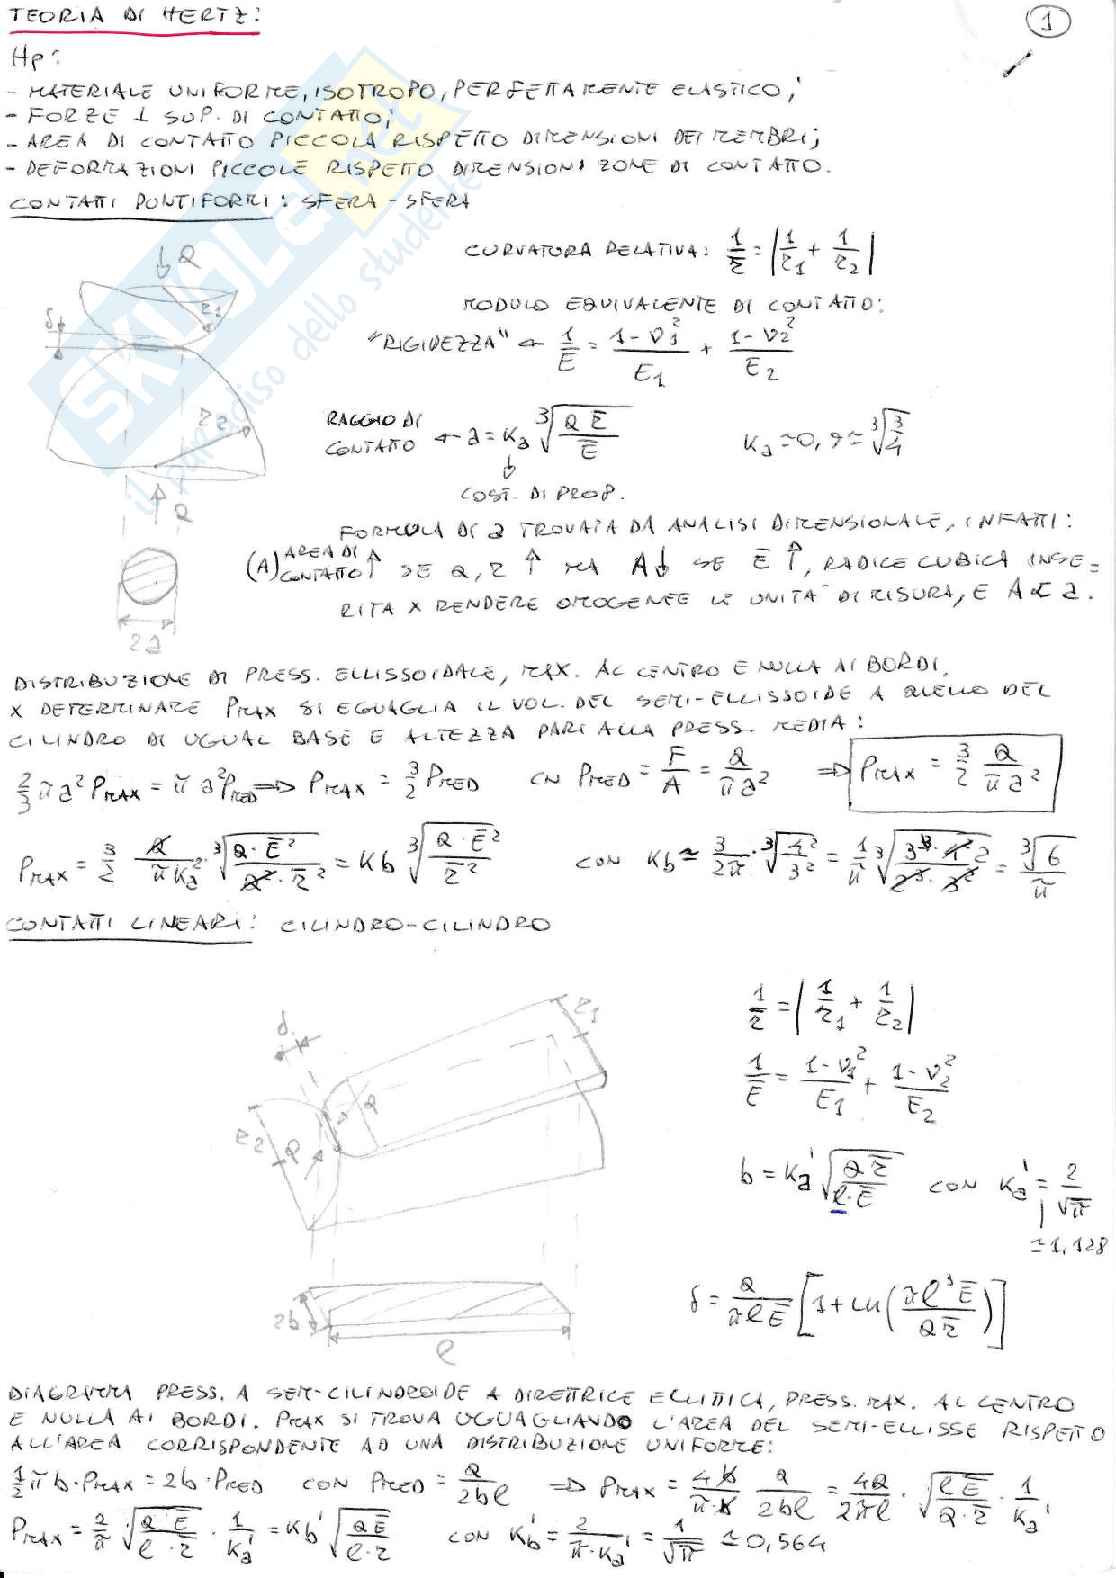 TEORIA DI HERTZ:
1
Hp:
- MATERIALE UNIFORME, ISOTROPO, PERFETTAMENTE ELASTICO;
- FORZE ⊥ SUP. DI CONTATTO;
- AREA DI CONTATTO PICCOLA RISPETTO DIMENSIONI DEI MEMBRI;
- DEFORMAZIONI PICCOLE RISPETTO DIMENSIONI ZONE DI CONTATTO.
CONTATTI PUNTIFORMI: SFERA-SFERA
SKUOLA.net
il paradiso dello studente
Q
r1
δ
r2
Q
2a
CURVATURA RELATIVA: 1/r̄ = |1/r1 + 1/r2|
MODULO EQUIVALENTE DI CONTATTO:
"RIGIDEZZA" ← 1/Ē = (1-ν1²)/E1 + (1-ν2²)/E2
RAGGIO DI CONTATTO ← a = Ka ∛(Q r̄/Ē) Ka ≃ 0,9 ≃ ∛(3/4)
COST. DI PROP.
FORMULA DI a TROVATA DA ANALISI DIMENSIONALE, INFATTI:
(A) AREA DI CONTATTO ↑ SE Q, r ↑ MA A↓ SE Ē ↑, RADICE CUBICA INSE=
RITA X RENDERE OMOGENEE LE UNITA' DI MISURA, E A ∝ a.
DISTRIBUZIONE DI PRESS. ELLISSOIDALE, MAX. AL CENTRO E NULLA AI BORDI.
X DETERMINARE PMAX SI EGUAGLIA IL VOL. DEL SEMI-ELLISSOIDE A QUELLO DEL
CILINDRO DI UGUAL BASE E ALTEZZA PARI ALLA PRESS. MEDIA:
2/3 π a² PMAX = π a² PMED ⇒ PMAX = 3/2 PMED CN PMED = F/A = Q/(π a²) ⇒ PMAX = 3/2 Q/(π a²)
PMAX = 3/2 Q/(π Ka²) · ∛(Q·Ē²/(Q²·r̄²)) = Kb ∛(Q·Ē²/r̄²) CON Kb ≃ 3/(2π) · ∛(4²/3²) = 1/π ∛(3³·4²/(2³·3²)) = ∛6/π
CONTATTI LINEARI: CILINDRO-CILINDRO
δ
r1
r2
Q
Q
2b
l
1/r̄ = |1/r1 + 1/r2|
1/Ē = (1-ν1²)/E1 + (1-ν2²)/E2
b = Ka' √(Q r̄/(l·Ē)) CON Ka' = 2/√π
≃1,128
δ = Q/(πlĒ) [1 + ln(πl³Ē/(Q r̄))]
DIAGRAMMA PRESS. A SEMI-CILINDROIDE A DIRETTRICE ELLITTICA, PRESS. MAX. AL CENTRO
E NULLA AI BORDI. PMAX SI TROVA UGUAGLIANDO L'AREA DEL SEMI-ELLISSE RISPETTO
ALL'AREA CORRISPONDENTE AD UNA DISTRIBUZIONE UNIFORME:
1/2 π b·PMAX = 2b·PMED CON PMED = Q/(2bl) ⇒ PMAX = 4b/(π·b) Q/(2bl) = 4Q/(2πl) · √(lĒ/(Q·r̄)) · 1/Ka'
PMAX = 2/π · √(Q Ē/(l·r̄)) · 1/Ka' = Kb' √(QĒ/(l·r̄)) CON Kb' = 2/(π·Ka') = 1/√π ≃ 0,564